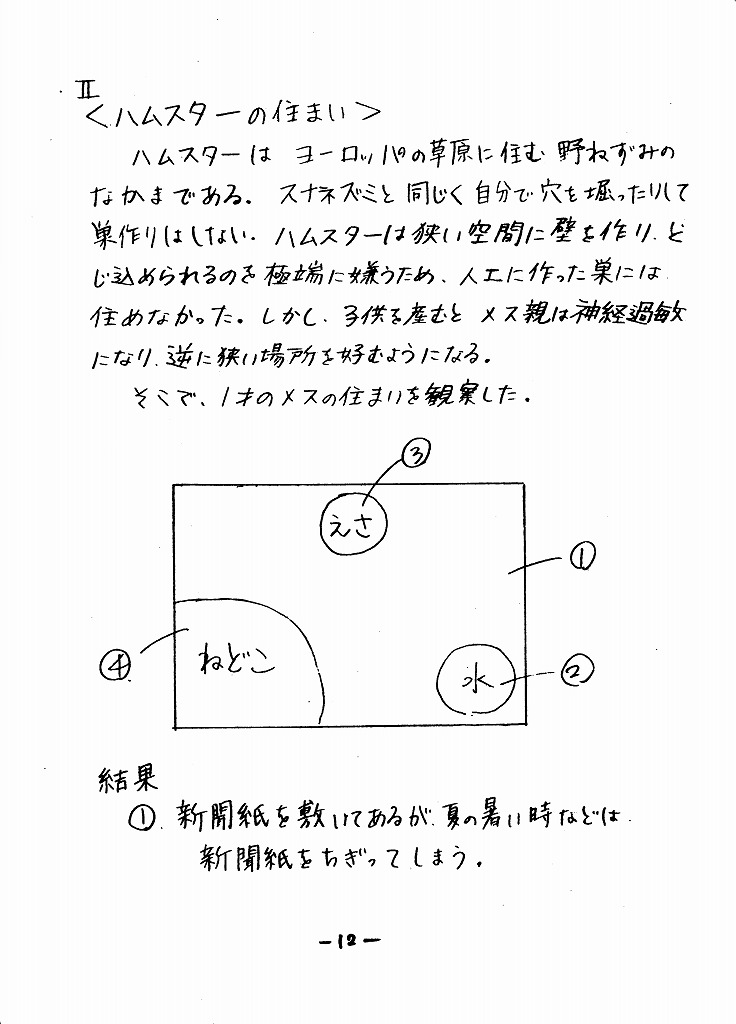 II
<ハムスターの住まい>
ハムスターは ヨーロッパの草原に住む 野ねずみの
なかまである。 スナネズミと同じく自分で穴を堀ったりして
巣作りはしない. ハムスターは狭い空間に壁を作り、と
じ込められるのを極端に嫌うため、人工に作った巣には
住めなかった。しかし、子供を産むと メス親は神経過敏
になり、逆に狭い場所を好むようになる。
そこで、1才のメスの住まいを観察した.
③
えさ
①
④
ねどこ
水
②
結果
①. 新聞紙を敷いてあるが、夏の暑い時などは
新聞紙をちぎってしまう.
-12-